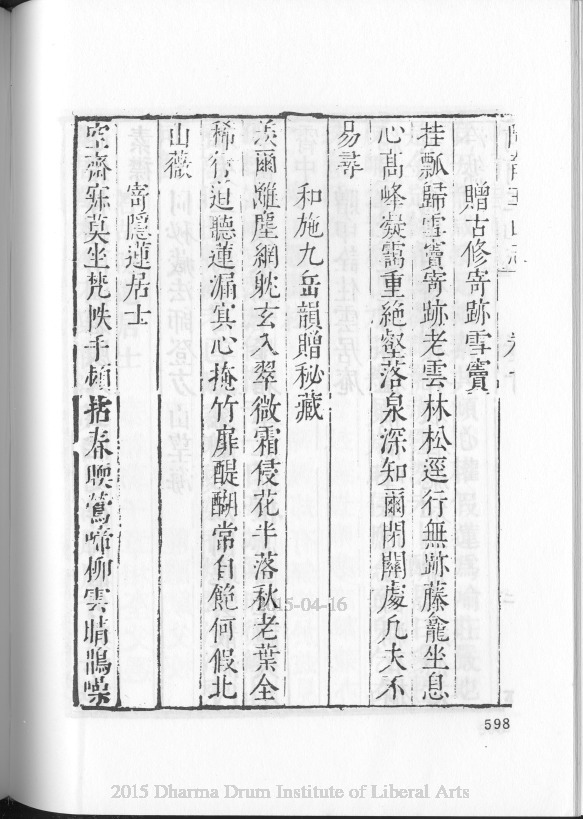 贈古修寄跡雪竇
挂瓢歸雪竇寄跡老雲林松逕行無跡藤龕坐息
心高峰凝靄重絶壑落泉深知爾閉關處凡夫不
易尋
和施九岳韻贈秘藏
羨爾離塵網躭玄入翠微霜侵花半落秋老葉全
稀行逈聽蓮漏冥心掩竹扉醍醐常自飽何假北
山薇
寄隱蓮居士
空齋寐莫坐梵帙手頻拈春暖鶯啼柳雲晴鵲噪
598
2015-04-16
2015 Dharma Drum Institute of Liberal Arts